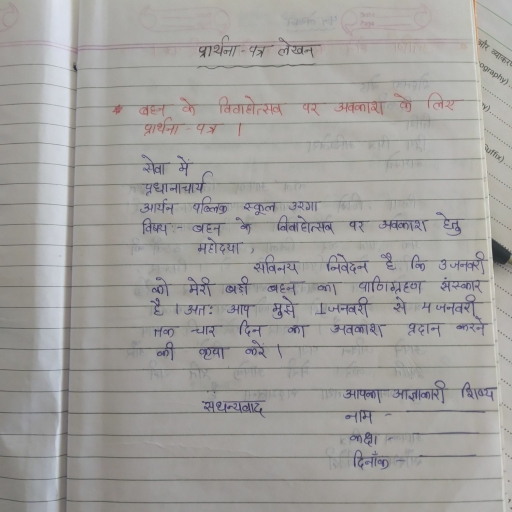 प्रार्थना-पत्र लेखन
* बहन के विवाहोत्सव पर अवकाश के लिए
प्रार्थना-पत्र ।
सेवा में
प्रधानाचार्य
आर्यन पब्लिक स्कूल उरगा
विषय :- बहन के विवाहोत्सव पर अवकाश हेतु
महोदया,
सविनय निवेदन है कि 3 जनवरी
को मेरी बडी बहन का पाणिग्रहण संस्कार
है । अतः आप मुझे 1 जनवरी से 4 जनवरी
तक चार दिन का अवकाश प्रदान करने
की कृपा करे ।
सधन्यवाद
आपका आज्ञाकारी शिष्य
नाम -
कक्षा
दिनाँक -